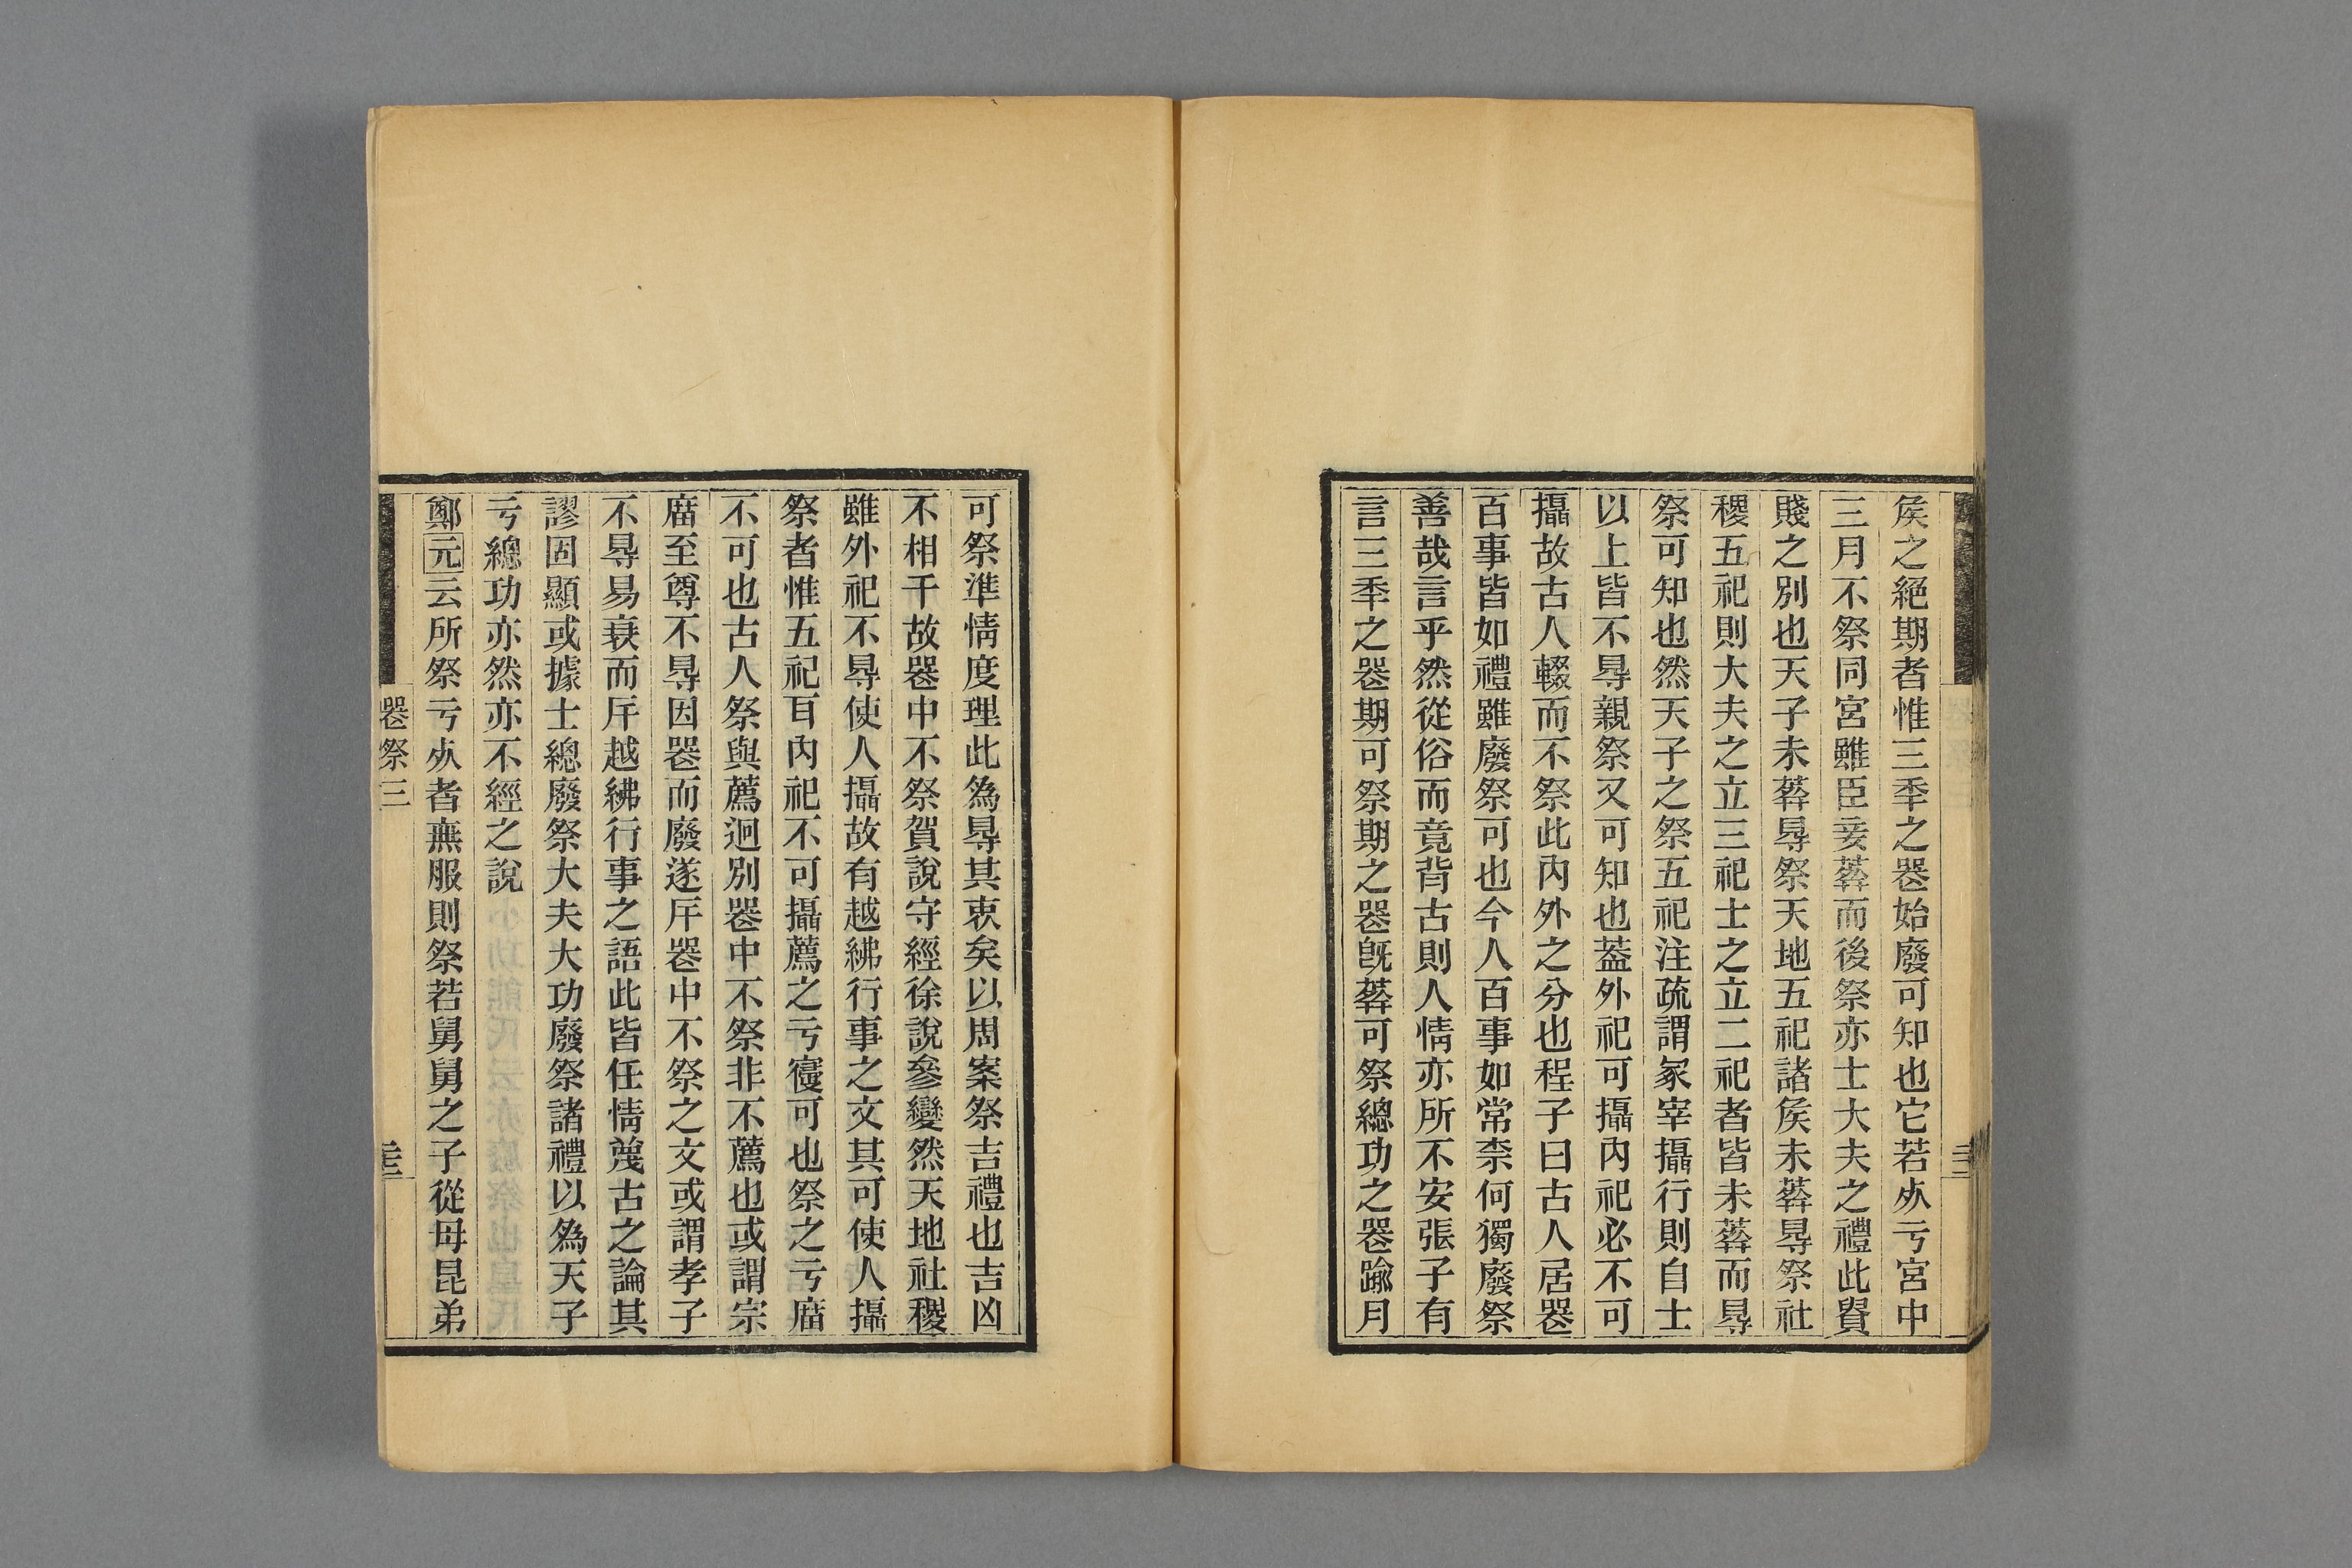 矦之絕期者惟三秊之喪始廢可知也它若𣦸亏宮中
三月不祭同宮雖臣妾葬而後祭亦士大夫之禮此貴
賤之別也天子未葬㝵祭天地五祀諸矦未葬㝵祭社
稷五祀則大夫之立三祀士之立二祀者皆未葬而㝵
祭可知也然天子之祭五祀注疏謂冢宰攝行則自士
以上皆不㝵親祭又可知也蓋外祀可攝內祀必不可
攝故古人輟而不祭此內外之分也程子曰古人居喪
百事皆如禮雖廢祭可也今人百事如常柰何獨廢祭
善哉言乎然從俗而竟背古則人情亦所不安張子有
言三秊之喪期可祭期之喪旣葬可祭緦功之喪踰月
可祭準情度理此為㝵其衷矣以周案祭吉禮也吉凶
不相干故喪中不祭賀說守經徐說參變然天地社稷
雖外祀不㝵使人攝故有越紼行事之文其可使人攝
祭者惟五祀耳內祀不可攝薦之亏寢可也祭之亏廟
不可也古人祭與薦迥別喪中不祭非不薦也或謂宗
廟至尊不㝵因喪而廢遂㡿喪中不祭之文或謂孝子
不㝵易衰而㡿越紼行事之語此皆任情蔑古之論其
謬固顯或據士緦廢祭大夫大功廢祭諸禮以為天子
亏緦功亦然亦不經之說
鄭元云所祭亏𣦸者無服則祭若舅舅之子從母昆弟
喪祭三